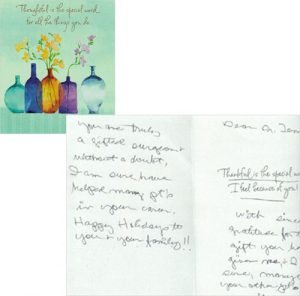 Thoughtful is the special word
for all the things you do.
you are truly
a gifted surgeon
without a doubt,
I am sure have
helped many pt's
in your care.
Happy Holidays to
you + your family!!
Dear Dr.
Thankful is the special w
I feel because of you!
With sin
gratitude for t
gift you ha
given me
many
your other pts